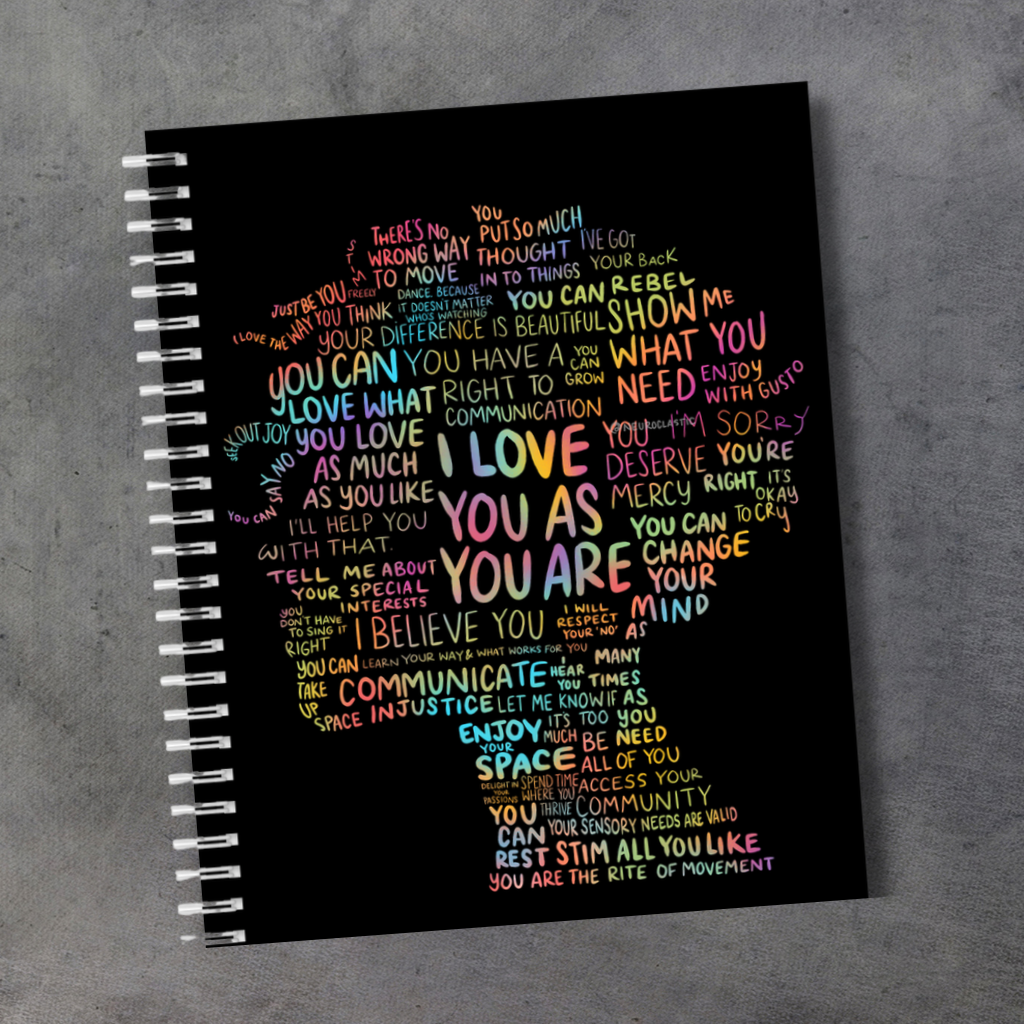 YOU
PUT SO MUCH
THOUGHT
IN TO THINGS
THERE'S NO
WRONG WAY
TO MOVE
I'VE GOT
YOUR BACK
STIM
FREELY
JUST BE YOU
DANCE. BECAUSE
IT DOESN'T MATTER
WHO'S WATCHING
YOU CAN REBEL
I LOVE THE WAY YOU THINK
YOUR DIFFERENCE IS BEAUTIFUL
SHOW ME
WHAT YOU
NEED
YOU CAN
LOVE WHAT
YOU LOVE
AS MUCH
AS YOU LIKE
YOU HAVE A
RIGHT TO
COMMUNICATION
YOU
CAN
GROW
ENJOY
WITH GUSTO
SEEK OUT JOY
YOU CAN SAY NO
I LOVE
YOU AS
YOU ARE
@NEUROCLASTIC
YOU
DESERVE
MERCY
I'M SORRY
YOU'RE
RIGHT
IT'S
OKAY
TO CRY
I'LL HELP YOU
WITH THAT.
YOU CAN
CHANGE
YOUR
MIND
TELL ME ABOUT
YOUR SPECIAL
INTERESTS
YOU
DON'T HAVE
TO SING IT
RIGHT
I BELIEVE YOU
I WILL
RESPECT
YOUR 'NO'
AS
MANY
TIMES
AS
YOU
NEED
LEARN YOUR WAY & WHAT WORKS FOR YOU
YOU CAN
TAKE
UP
SPACE
COMMUNICATE
INJUSTICE
I
HEAR
YOU
LET ME KNOW IF
IT'S TOO
MUCH
ENJOY
YOUR
SPACE
BE
ALL OF YOU
DELIGHT IN
YOUR
PASSIONS
SPEND TIME
WHERE YOU
THRIVE
ACCESS YOUR
COMMUNITY
YOU
CAN
REST
YOUR SENSORY NEEDS ARE VALID
STIM ALL YOU LIKE
YOU ARE THE RITE OF MOVEMENT